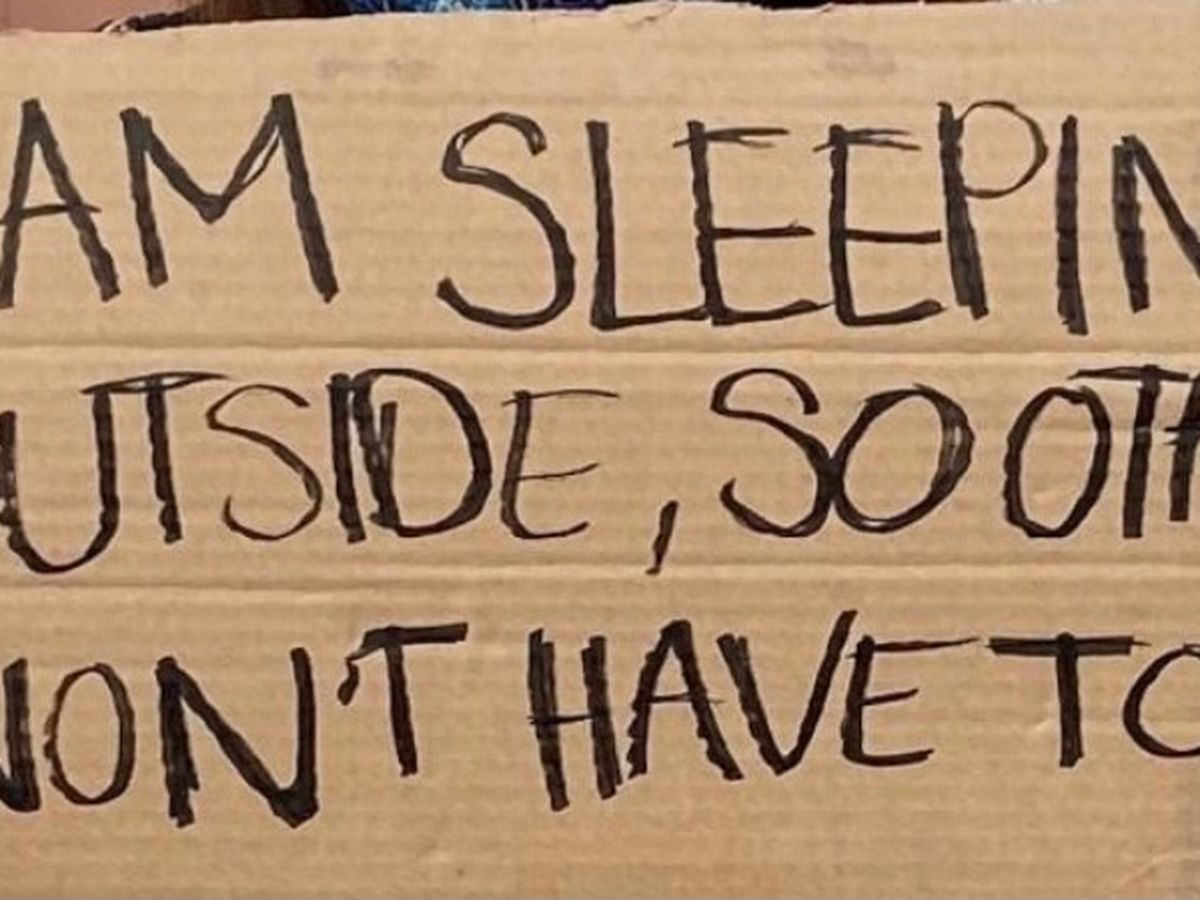 AM SLEEPIN
UTSIDE, SO OTH
WON'T HAVE TO